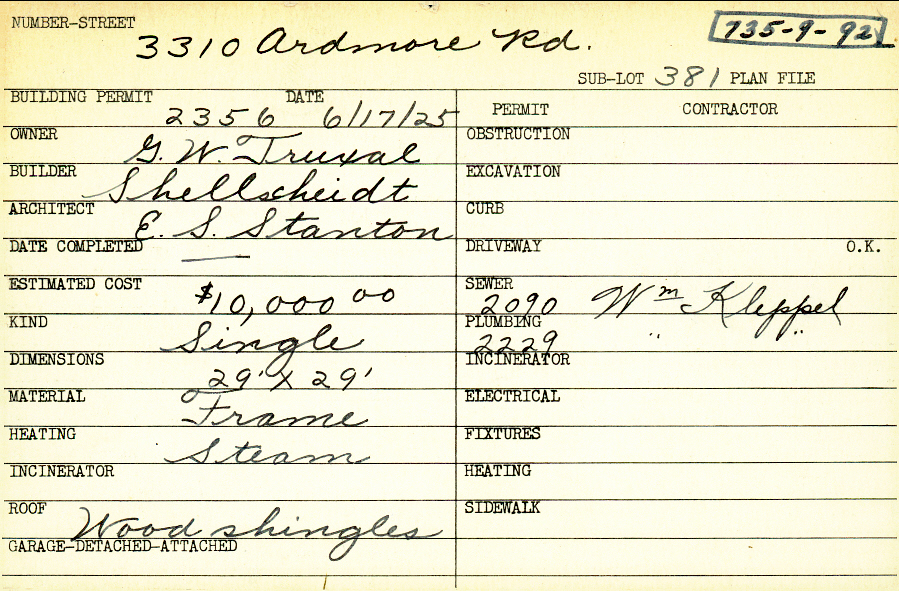 NUMBER-STREET 3310 Ardmore Rd. 735-9-92
SUB-LOT 381 PLAN FILE
BUILDING PERMIT 2356 DATE 6/17/25 PERMIT CONTRACTOR
OWNER G. W. Truxal OBSTRUCTION
BUILDER Shellscheidt EXCAVATION
ARCHITECT E. S. Stanton CURB
DATE COMPLETED — DRIVEWAY O.K.
ESTIMATED COST $10,000 00 SEWER 2090 Wm Kleppel
KIND Single PLUMBING 2229 " "
DIMENSIONS 29' X 29' INCINERATOR
MATERIAL Frame ELECTRICAL
HEATING Steam FIXTURES
INCINERATOR HEATING
ROOF Wood shingles SIDEWALK
GARAGE-DETACHED-ATTACHED